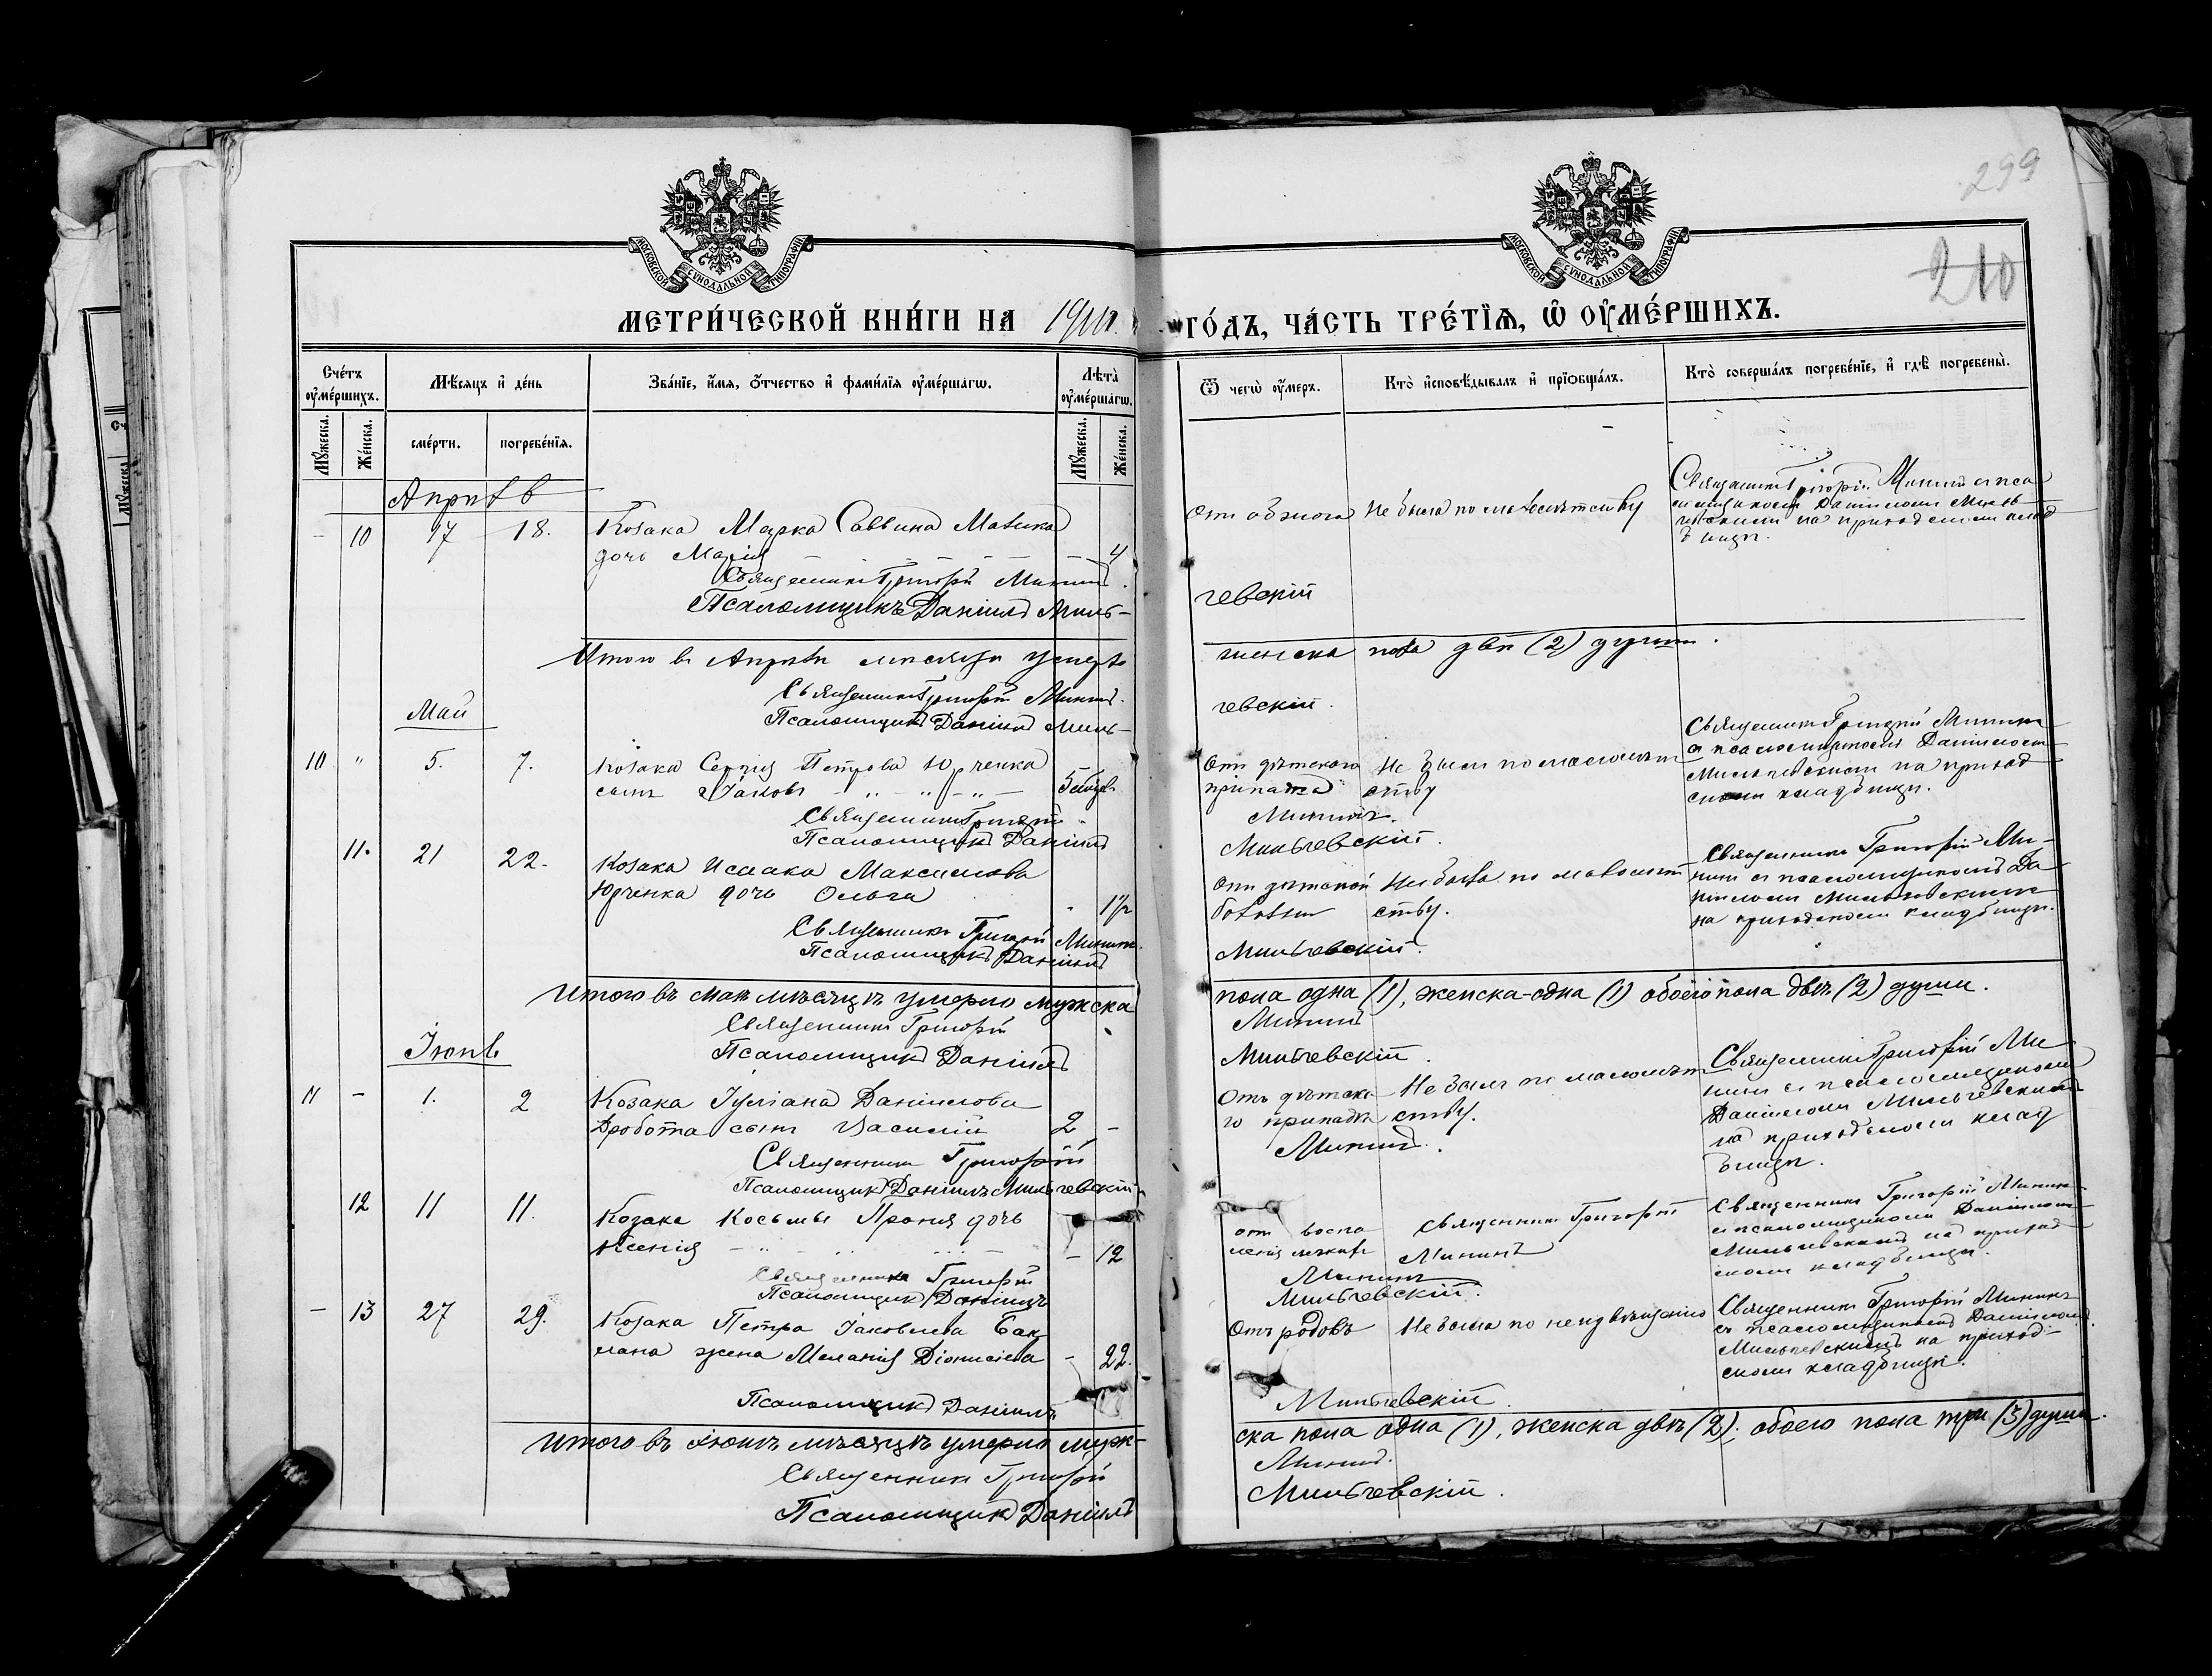 299
210
МОСКОВСКОЙ СѴНОДАЛЬНОЙ ТИПОГРАФІИ
МОСКОВСКОЙ СѴНОДАЛЬНОЙ ТИПОГРАФІИ
МЕТРИ́ЧЕСКОЙ КНИ́ГИ НА
ГО́ДЪ, ЧА́СТЬ ТРЕ́ТЇѦ, Ѡ҆ ОУ҆МЕ́РШИХЪ.
Сче́тъ оу҆ме́ршихъ.
Мꙋ́жеска.
Же́нска.
Мѣ́сѧцъ и҆ де́нь
сме́рти.
погребе́нїѧ.
Зва́нїе, и҆́мѧ, ѻ҆́тчество и҆ фами́лїѧ оу҆ме́ршагѡ.
Лѣ́та оу҆ме́ршагѡ.
Мꙋ́жеска.
Же́нска.
Ѿ чегѡ̀ оу҆́меръ.
Кто̀ и҆сповѣ́дывалъ и҆ прїѡбща́лъ.
Кто̀ соверша́лъ погребе́нїе, и҆ гдѣ̀ погребены̀.
Апрѣль
- 10 17 18. Козака Марка Саввина
дочь Марія — 4
Отъ ожога Не была по малолѣтству
Священникъ Григорій Мининъ съ пса
ломщикомъ Даніиломъ Миль
чевскимъ на приходскомъ клад
бищѣ.
Священникъ Григорій Мининъ.
Псаломщикъ Даніилъ Миль-
чевскій
Итого въ Апрѣлѣ мѣсяцѣ умерло
женска пола двѣ (2) души.
Священникъ Григорій Мининъ.
Псаломщикъ Даніилъ Миль-
чевскій.
Май
10 " 5. 7. Козака Сергія Петрова Юрченка
сынъ Іаковъ
Отъ дѣтскаго Не былъ по малолѣт
припадка ству
Священникъ Григорій Мининъ
съ псаломщикомъ Даніиломъ
Мильчевскимъ на приход
скомъ кладбищѣ.
Священникъ Григорій Мининъ.
Псаломщикъ Даніилъ Мильчевскій.
11. 21 22. Козака Исаака Максимова
Юрченка дочь Ольга
Отъ дѣтской Не была по малолѣт
болѣзни ству.
Священникъ Григорій Ми-
нинъ съ псаломщикомъ Да
ніиломъ Мильчевскимъ
на приходскомъ кладбищѣ.
Священникъ Григорій Мининъ.
Псаломщикъ Даніилъ Мильчевскій.
Итого въ маѣ мѣсяцѣ умерло мужска
пола одна (1), женска-одна (1) обоего пола двѣ (2) души.
Священникъ Григорій Мининъ
Псаломщикъ Даніилъ Мильчевскій.
Іюнь
11 - 1. 2 Козака Іуліана Даніилова
Дробота сынъ Василій 2 -
Отъ дѣтска- Не былъ по малолѣт
го припадка ству.
Священникъ Григорій Ми
нинъ съ псаломщикомъ
Даніиломъ Мильчевскимъ
на приходскомъ клад
бищѣ.
Священникъ Григорій Мининъ.
Псаломщикъ Даніилъ Мильчевскій
12 11 11. Козака Косьмы дочь
Ксенія - 12
отъ воспа Священникъ Григорій
ленія легкихъ Мининъ
Священникъ Григорій Мининъ
съ псаломщикомъ Даніиломъ
Мильчевскимъ на приход
скомъ кладбищѣ.
Священникъ Григорій Мининъ
Псаломщикъ Даніилъ Мильчевскій.
- 13 27 29. Козака Петра Іаковлева
жена Меланія Діонисіева - 22.
Отъ родовъ Не была по неизвѣщенію
Священникъ Григорій Мининъ
съ псаломщикомъ Даніиломъ
Мильчевскимъ на приход-
скомъ кладбищѣ.
Псаломщикъ Даніилъ Мильчевскій.
Итого въ Іюнѣ мѣсяцѣ умерло муж-
ска пола одна (1), женска двѣ (2); обоего пола три (3) души.
Священникъ Григорій Мининъ.
Псаломщикъ Даніилъ Мильчевскій.